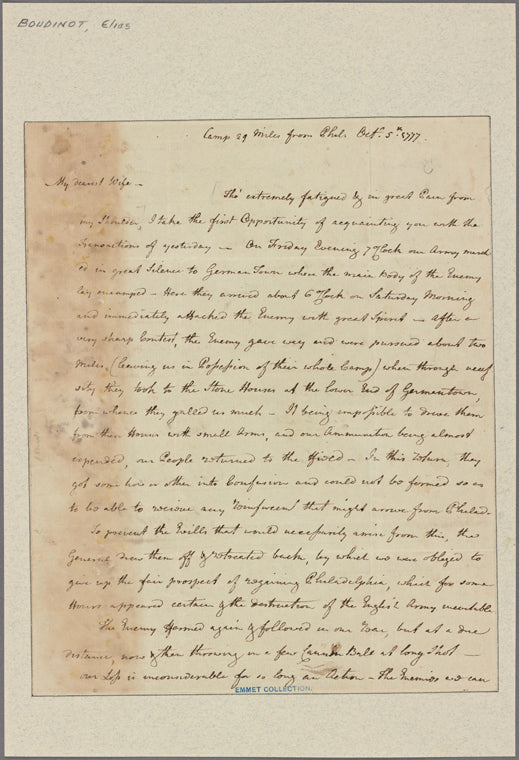 BOUDINOT, Elias
Camp 29 Miles from Phil. Octr. 5th 1777.
My dearest Wife –
Tho' extremely fatigued & in great Pain from
my Shoulder, I take the first Opportunity of acquainting you with the
Transactions of yesterday – On Friday Evening 7 OClock our Army march
ed in great Silence to German Town where the main body of the Enemy
lay encamped – Here they arrived about 6 OClock on Saturday Morning
and immediately attacked the Enemy with great Spirit – After a
very sharp Contest, the Enemy gave way and were pursued about two
Miles (leaving us in Possession of their whole Camp) when through necess
sity they took to the Stone Houses at the lower End of Germantown,
from whence they galled us much – It being impossible to drive them
from these Houses with small Arms, and our Ammunition being almost
expended, our People returned to the – In this Return, they
got some how or other into Confusion and could not be formed so as
to be able to receive any that might arrive from Philad-
To prevent the Evills that would necessarily arise from this, the
General drew them off & retreated back, by which we were obliged to
give up the fair prospect of regaining Philadelphia, which for some
Hours appeared certain & the destruction of the English Army inevitable
The Enemy formed again & followed in our Rear, but at a due
distance, now & then throwing in a few Cannon Balls at long Shot –
our Loss is inconsiderable for so long an Action – The Enemies we can
EMMET COLLECTION.